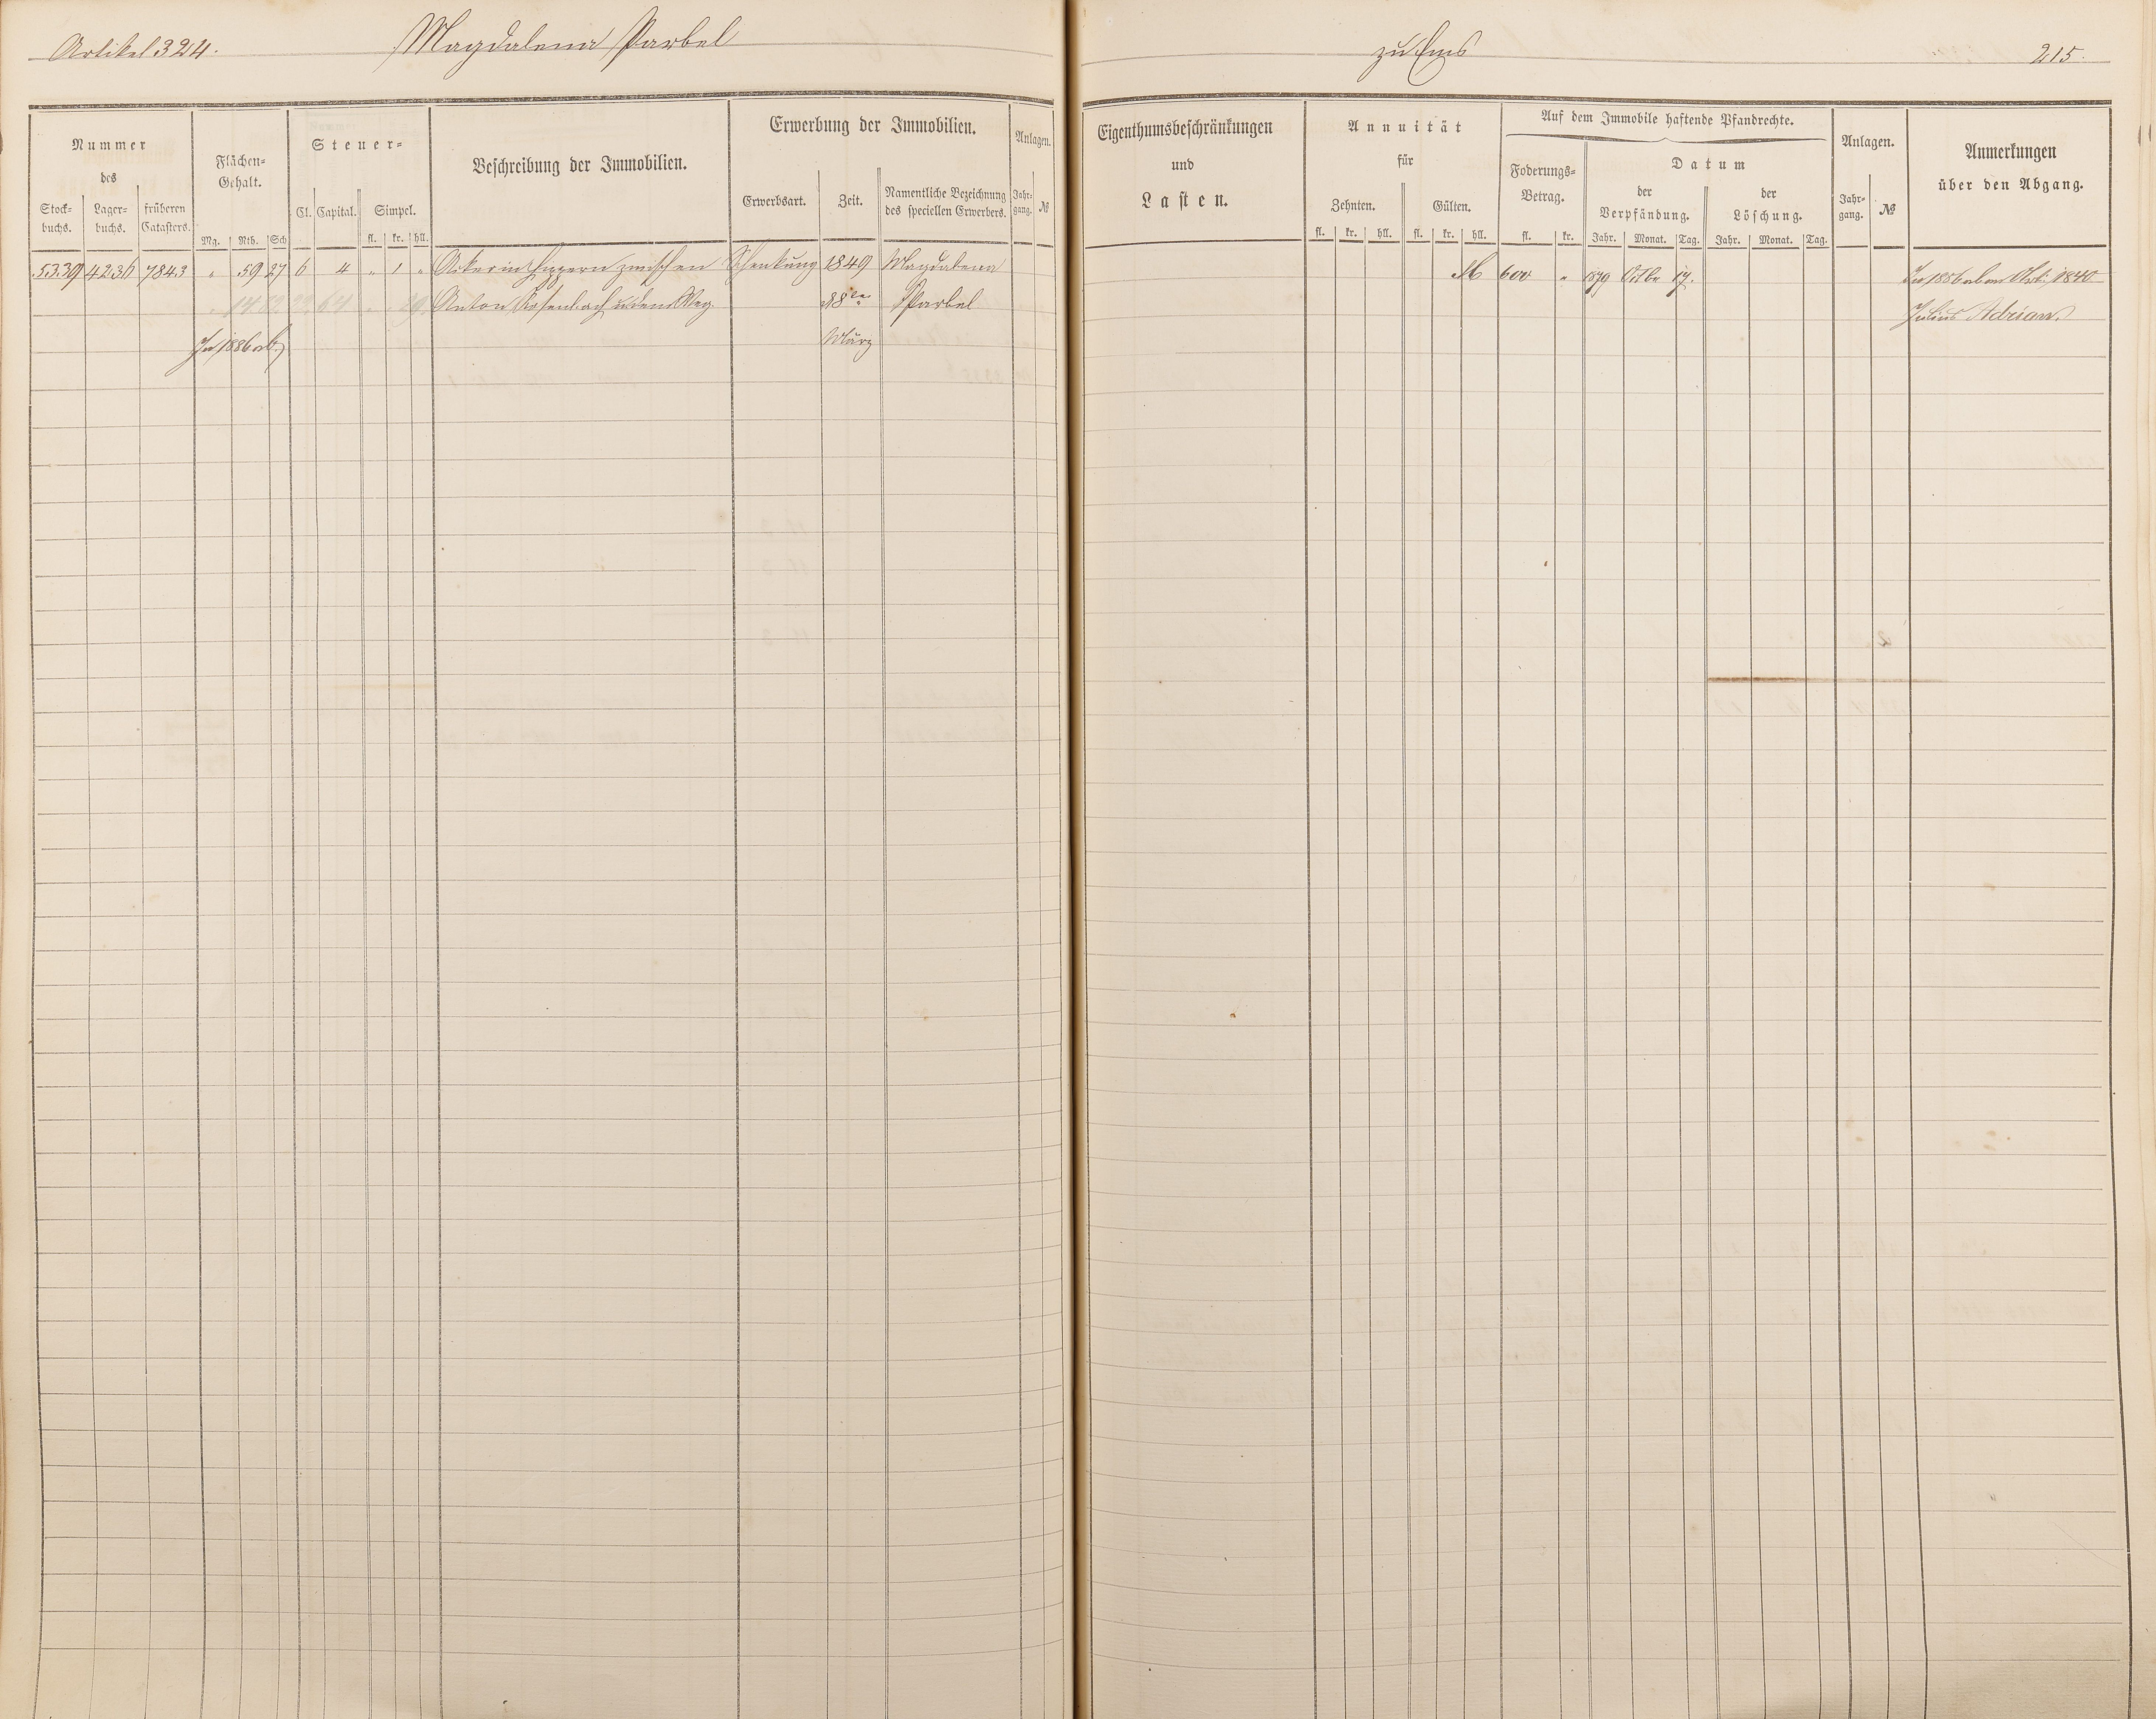 Artikel 324. Magdalena Parbel zu Ems 215.
Nummer
des
Stock-
buchs.
Lager-
buchs.
früheren
Catasters.
Flächen-
Gehalt.
Mg. Rth. Sch
Steuer-
Cl. Capital. Simpel.
fl. kr. hll.
Beschreibung der Immobilien.
Erwerbung der Immobilien.
Erwerbsart. Zeit.
Namentliche Bezeichnung
des speciellen Erwerbers.
Anlagen.
Jahr-
gang.
№
Eigenthumsbeschränkungen
und
Lasten.
Annuität
für
Zehnten. Gülten.
fl. kr. hll. fl. kr. hll.
Auf dem Immobile haftende Pfandrechte.
Foderungs-
Betrag.
fl. kr.
Datum
der
Verpfändung.
Jahr. Monat. Tag.
der
Löschung.
Jahr. Monat. Tag.
Anlagen.
Jahr-
gang.
№
Anmerkungen
über den Abgang.
5339 4236 7843 „ 59 27 6 4 „ 1 „ Acker in zwischen Schenkung 1849 Magdalena M 600 „ 1879 Octbr 17. In 1886 ab am 1840
Anton u. dem Weg 28ten Parbel Julius Adrian.
In 1886 ab. März